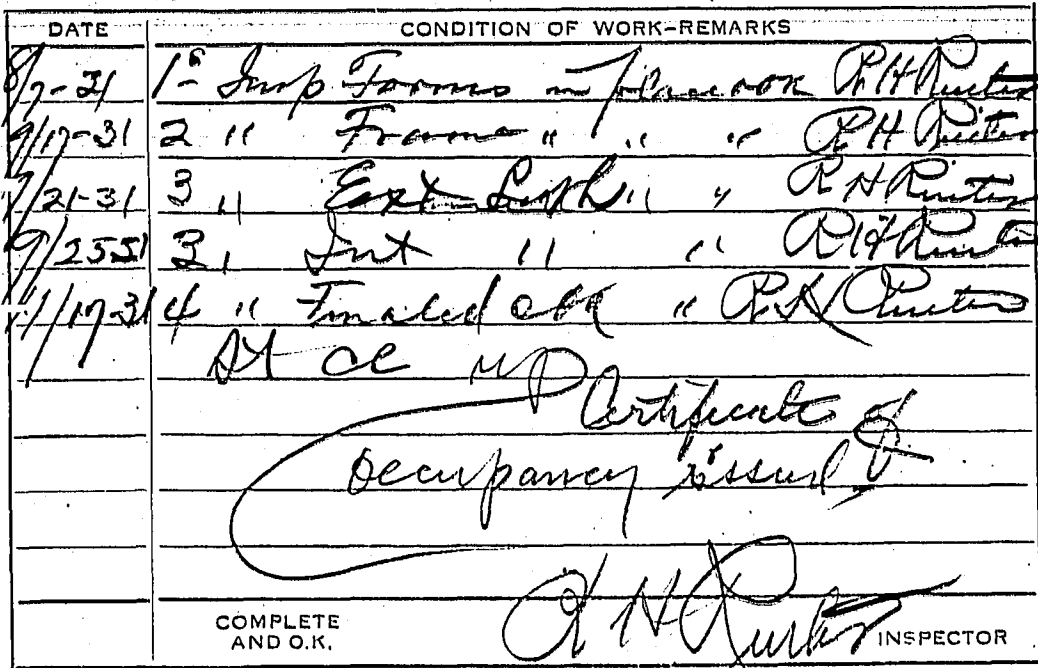 DATE CONDITION OF WORK-REMARKS
8/7-31 1st Insp Forms in place OK R H Ruiter
9/17-31 2 " Frame " " " R H Ruiter
9/21-31 3 " Ext Lath " " R H Ruiter
9/25 31 3 " Int " " R H Ruiter
11/17-31 4 " Finaled OK " R H Ruiter
up
Certificate of
Occupancy issued
COMPLETE AND O.K. R H Ruiter INSPECTOR